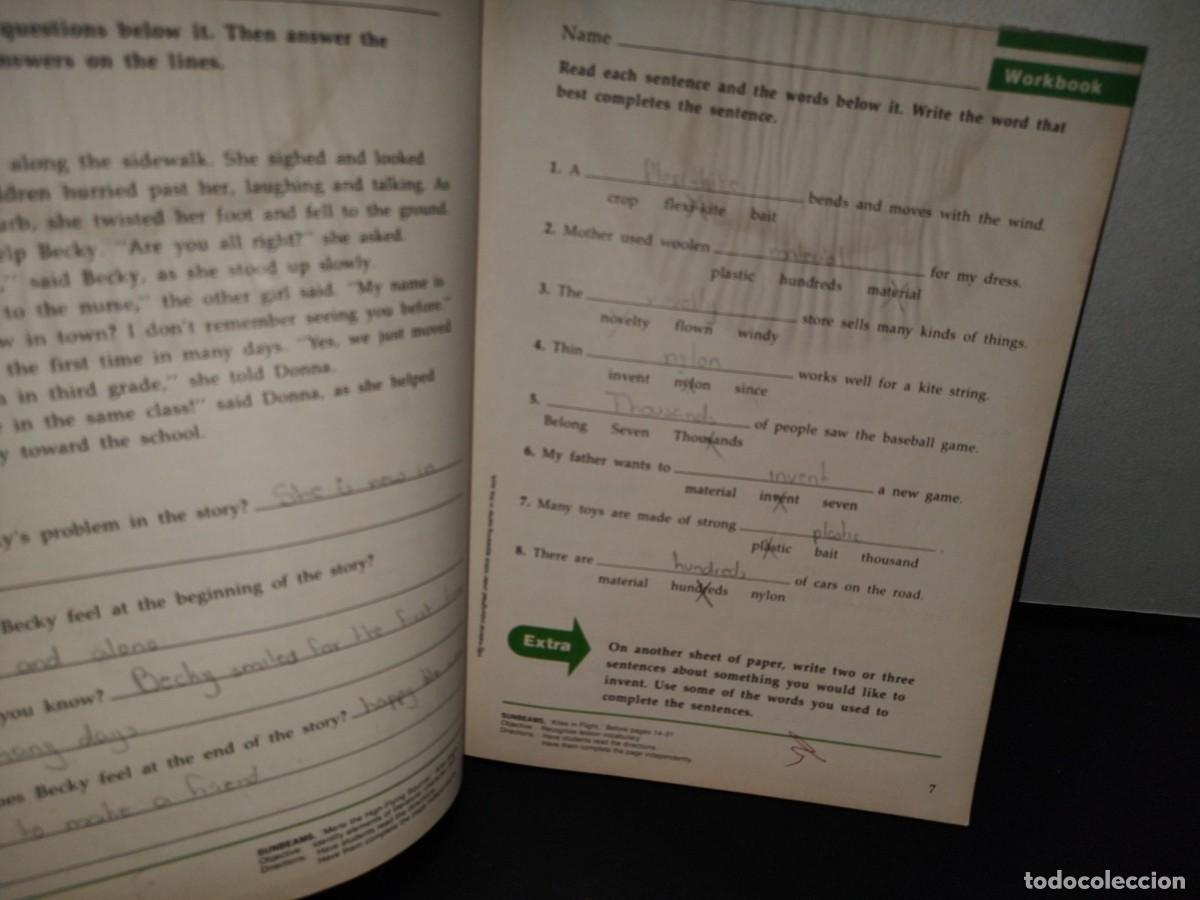 questions below it. Then answer the
answers on the lines.
along the sidewalk. She sighed and looked
ldren hurried past her, laughing and talking. As
urb, she twisted her foot and fell to the ground.
elp Becky. "Are you all right?" she asked.
," said Becky, as she stood up slowly.
to the nurse," the other girl said. "My name is
w in town? I don't remember seeing you before."
the first time in many days. "Yes, we just moved
in third grade," she told Donna.
in the same class!" said Donna, as she helped
y toward the school.
y's problem in the story? She is new in
Becky feel at the beginning of the story?
and alone
you know? Becky smiled for the first
many days
oes Becky feel at the end of the story? happy
to make a friend
SUNBEAMS,
Name
Workbook
Read each sentence and the words below it. Write the word that
best completes the sentence.
1. A bends and moves with the wind.
crop flexi-kite bait
2. Mother used woolen material for my dress.
plastic hundreds material
3. The novelty store sells many kinds of things.
novelty flown windy
4. Thin nylon works well for a kite string.
invent nylon since
5. Thousands of people saw the baseball game.
Belong Seven Thousands
6. My father wants to invent a new game.
material invent seven
7. Many toys are made of strong plastic.
plastic bait thousand
8. There are hundreds of cars on the road.
material hundreds nylon
Extra
On another sheet of paper, write two or three
sentences about something you would like to
invent. Use some of the words you used to
complete the sentences.
SUNBEAMS, "Kites in Flight." Before pages 14-21
Objective: Recognize lesson vocabulary
Directions: Have students read the directions.
Have them complete the page independently.
7
todocoleccion